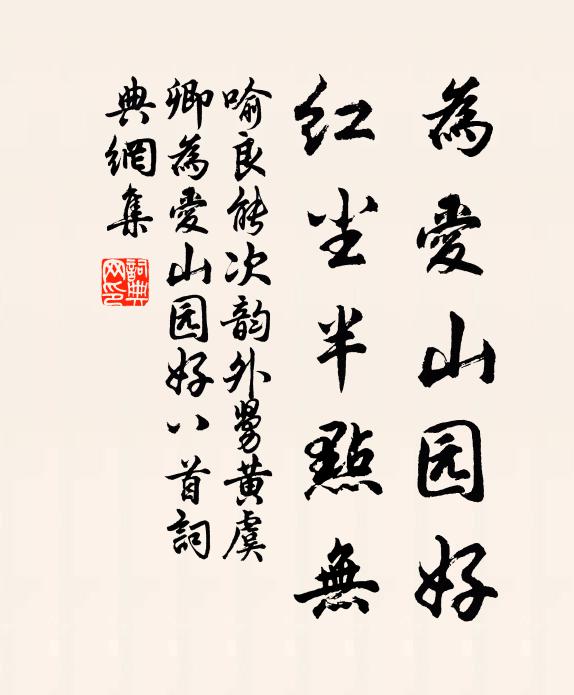 為愛山园好
红尘半點無
喻良能次韵外舅黄虞
卿為愛山园好八首詞
典網集
詞典网印